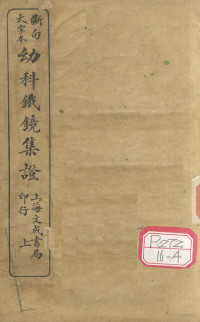 斷句
大字本
幼科鐵鏡集證
上海文成書局
印行
上
R272